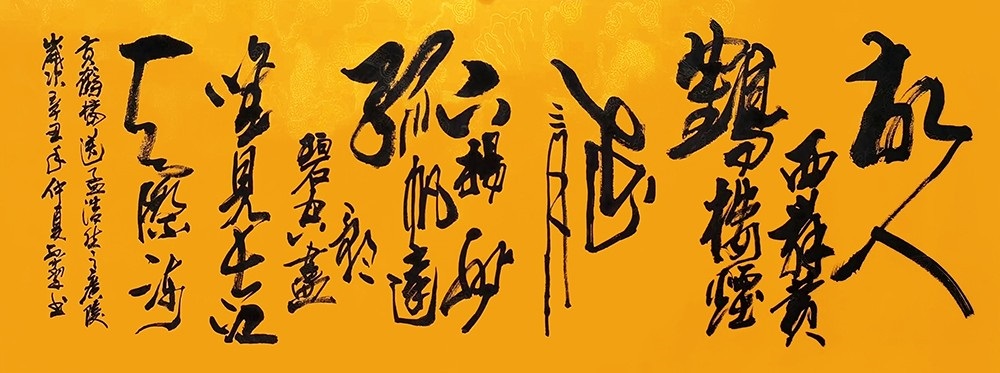 故人
西辭黃
鶴樓煙
花
三月
下揚州
孤帆遠
影
碧空盡
唯見長江
天際流
黃鶴樓送孟浩然之廣陵
歲次辛丑年仲夏書